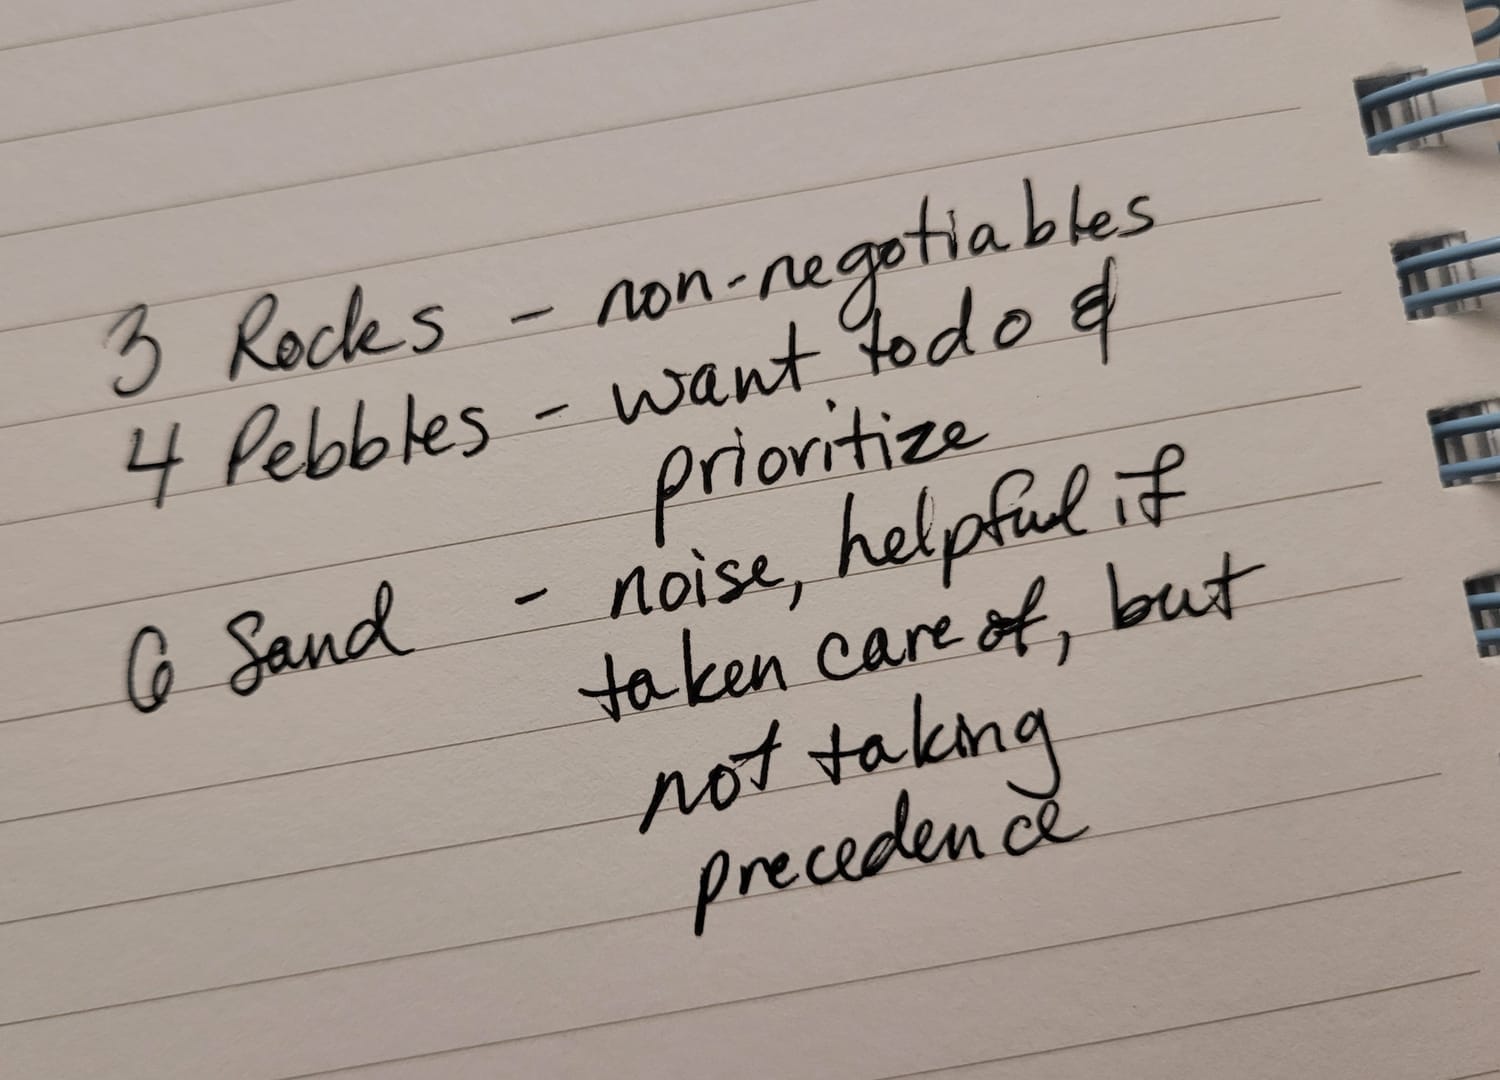 3 Rocks - non-negotiables
4 Pebbles - want to do &
prioritize
6 Sand - noise, helpful if
taken care of, but
not taking
precedence